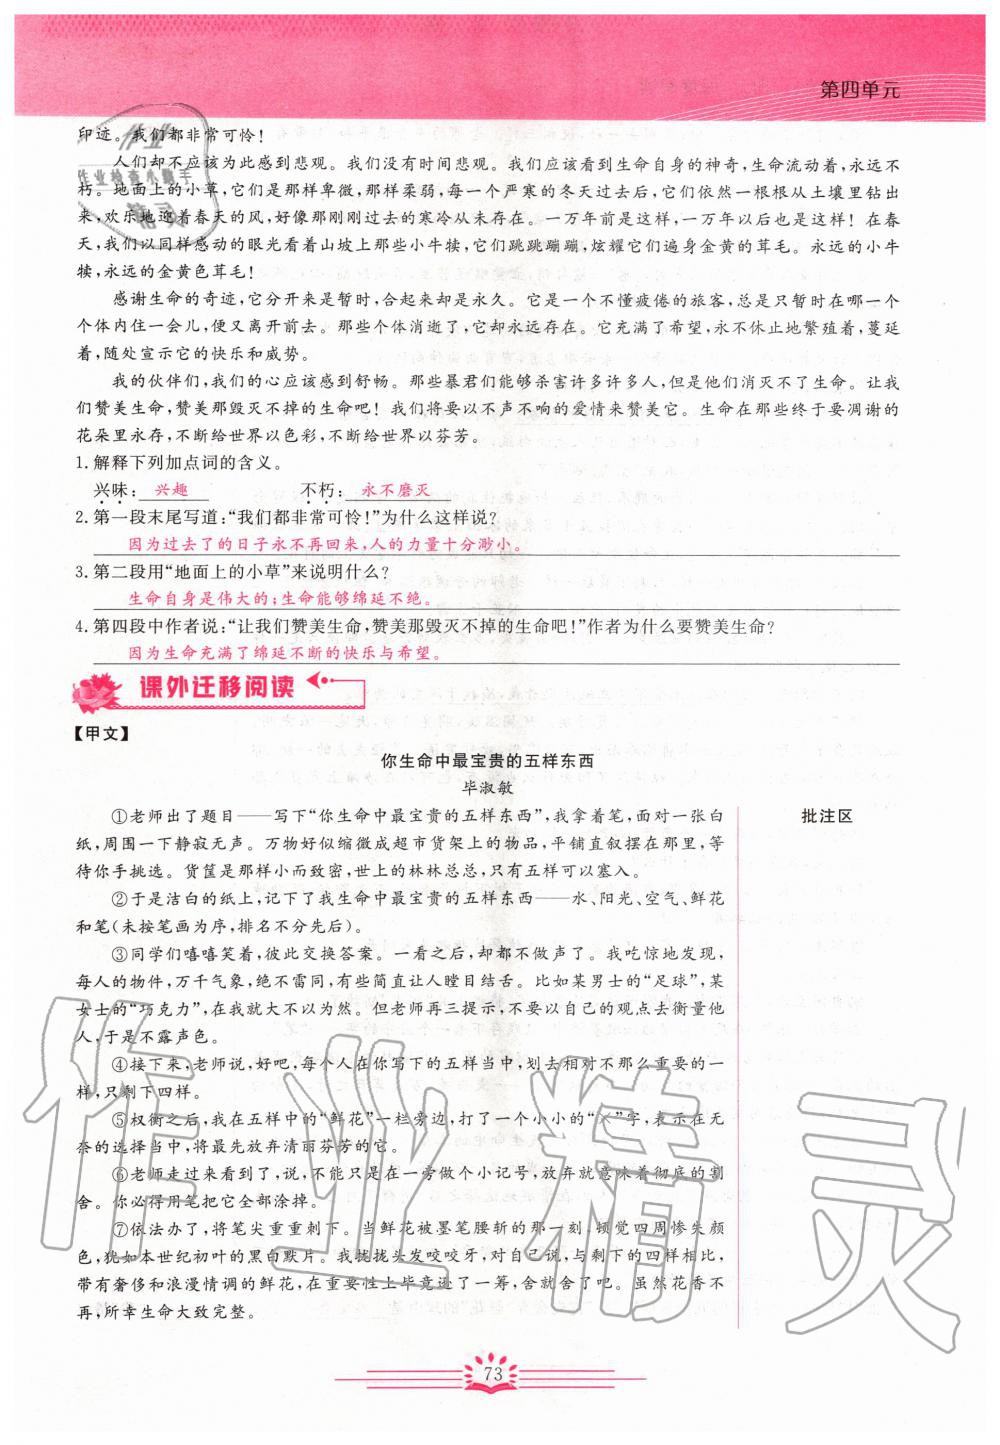 第四单元
印迹。我们都非常可怜！
人们却不应该为此感到悲观。我们没有时间悲观。我们应该看到生命自身的神奇，生命流动着，永远不
朽。地面上的小草，它们是那样卑微，那样柔弱，每一个严寒的冬天过去后，它们依然一根根从土壤里钻出
来，欢乐地迎着春天的风，好像那刚刚过去的寒冷从未存在。一万年前是这样，一万年以后也是这样！在春
天，我们以同样感动的眼光看着山坡上那些小牛犊，它们跳跳蹦蹦，炫耀它们遍身金黄的茸毛。永远的小牛
犊，永远的金黄色茸毛！
感谢生命的奇迹，它分开来是暂时，合起来却是永久。它是一个不懂疲倦的旅客，总是只暂时在哪一个
个体内住一会儿，便又离开前去。那些个体消逝了，它却永远存在。它充满了希望，永不休止地繁殖着，蔓延
着，随处宣示它的快乐和威势。
我的伙伴们，我们的心应该感到舒畅。那些暴君们能够杀害许多许多人，但是他们消灭不了生命。让我
们赞美生命，赞美那毁灭不掉的生命吧！我们将要以不声不响的爱情来赞美它。生命在那些终于要凋谢的
花朵里永存，不断给世界以色彩，不断给世界以芬芳。
1. 解释下列加点词的含义。
兴味：兴趣 不朽：永不磨灭
2. 第一段末尾写道：“我们都非常可怜！”为什么这样说？
因为过去了的日子永不再回来，人的力量十分渺小。
3. 第二段用“地面上的小草”来说明什么？
生命自身是伟大的；生命能够绵延不绝。
4. 第四段中作者说：“让我们赞美生命，赞美那毁灭不掉的生命吧！”作者为什么要赞美生命？
因为生命充满了绵延不断的快乐与希望。
课外迁移阅读
【甲文】
你生命中最宝贵的五样东西
毕淑敏
①老师出了题目——写下“你生命中最宝贵的五样东西”，我拿着笔，面对一张白
纸，周围一下静寂无声。万物好似缩微成超市货架上的物品，平铺直叙摆在那里，等
待你手挑选。货筐是那样小而致密，世上的林林总总，只有五样可以塞入。
②于是洁白的纸上，记下了我生命中最宝贵的五样东西——水、阳光、空气、鲜花
和笔（未按笔画为序，排名不分先后）。
③同学们嘻嘻笑着，彼此交换答案。一看之后，却都不做声了。我吃惊地发现，
每人的物件，万千气象，绝不雷同，有些简直让人瞠目结舌。比如某男士的“足球”，某
女士的“巧克力”，在我就大不以为然。但老师再三提示，不要以自己的观点去衡量他
人，于是不露声色。
④接下来，老师说，好吧，每个人在你写下的五样当中，划去相对不那么重要的一
样，只剩下四样。
⑤权衡之后，我在五样中的“鲜花”一栏旁边，打了一个小小的“×”字，表示在无
奈的选择当中，将最先放弃清丽芬芳的它。
⑥老师走过来看到了，说，不能只是在一旁做个小记号，放弃就意味着彻底的割
舍。你必得用笔把它全部涂掉。
⑦依法办了，将笔尖重重刺下。当鲜花被墨笔腰斩的那一刻，顿觉四周惨失颜
色，犹如本世纪初叶的黑白默片。我拢拢头发咬咬牙，对自己说，与剩下的四样相比，
带有奢侈和浪漫情调的鲜花，在重要性上毕竟逊了一筹，舍就舍了吧。虽然花香不
再，所幸生命大致完整。
批注区
73
作业精灵
作业
作业检查小助手
精灵